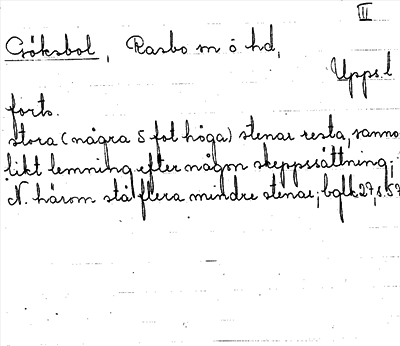 III
Gröksbol, Rasbo m o hd,
Upps.l
forts.
stora (några 5 fot höga) stenar resta, sanno-
likt lemning efter någon skeppssättning;
N. härom stå flera mindre stenar; bglk 27, s. 57